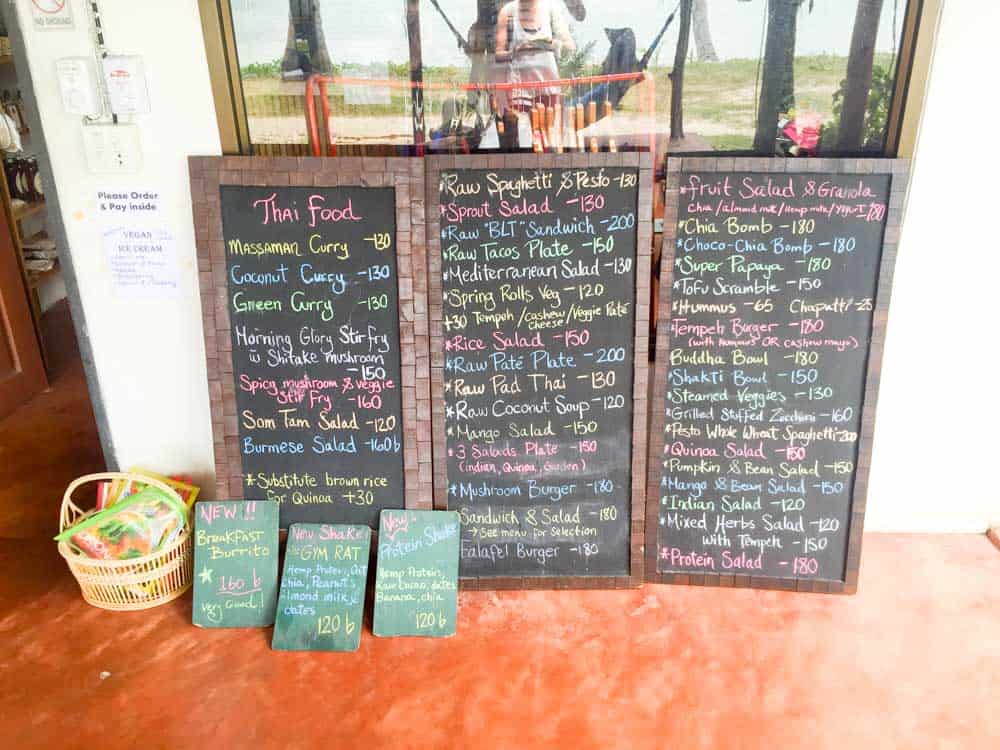 NO SMOKING
Please Order
& Pay inside
VEGAN
ICE CREAM
Thai Food
Massaman Curry -130
Coconut Curry -130
Green Curry -130
Morning Glory Stir fry
w Shitake mushroom
-150
Spicy mushroom & veggie
Stir Fry -160
Som Tam Salad -120
Burmese Salad -160 b
* Substitute brown rice
for Quinoa +30
NEW!!
Breakfast
Burrito
160 b
very Good!
New Shake!
GYM RAT
Hemp Protein,
chia, Peanuts
almond milk &
dates
120 b
New
Protein Shake
Hemp Protein,
Raw Cacao, dates
Banana, chia
120 b
* Raw Spaghetti & Pesto -130
* Sprout Salad -130
* Raw "BLT" Sandwich -200
* Raw Tacos Plate -150
* Mediterranean Salad -130
* Spring Rolls Veg -120
+30 Tempeh / cashew cheese / Veggie Paté
* Rice Salad -150
* Raw Paté Plate -200
* Raw Pad Thai -130
* Raw Coconut Soup -120
* Mango Salad -150
* 3 Salads Plate -150
(Indian, Quinoa, Garden)
* Mushroom Burger -180
Sandwich & Salad -180
→ See menu for Selection
Falafel Burger -180
* Fruit Salad & Granola
Chia / almond milk / Hemp milk / Yogurt 180
* Chia Bomb -180
* Choco-Chia Bomb -180
* Super Papaya -180
* Tofu Scramble -150
* Hummus -65 Chapatti -25
Tempeh Burger -180
(with Hummus OR cashew mayo)
Buddha Bowl -180
* Shakti Bowl -150
* Steamed Veggies -130
* Grilled Stuffed Zucchini -160
* Pesto Whole Wheat Spaghetti -200
* Quinoa Salad -150
* Pumpkin & Bean Salad -150
* Mango & Bean Salad -150
* Indian Salad -120
* Mixed Herbs Salad -120
with Tempeh -150
* Protein Salad -180